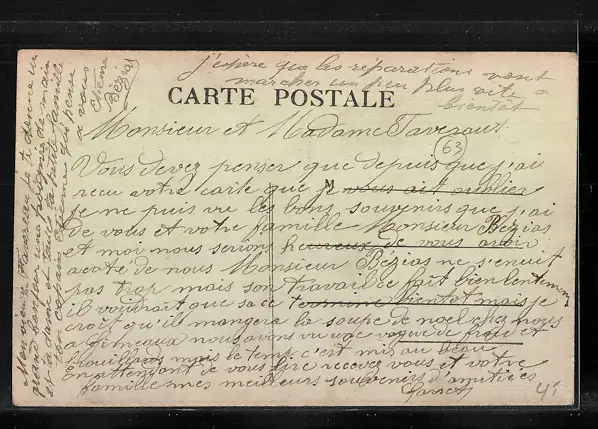 j'espère que les réparations vont
marcher un peu plus vite a
bientôt
CARTE POSTALE
Monsieur et Madame Taveraus
63
Vous devez penser que depuis que j'ai
recu votre carte que je vous ait oublier
je ne puis vu les bons souvenirs que j'ai
de vous et votre famille Monsieur Bézias
et moi nous serions heureux de vous avoir
acoté de nous Monsieur Bézias ne s'enuit
pas trop mais son travail ce fait bien lentement
il voudrait que sa ce termine bientot mais je
croit qu'il mangera la soupe de noel chez nous
a Gimeaux nous avons vu une vague de froid et
brouillons mais le temps c'est mis au beau
En attendant de vous lire recevez vous et votre
famille mes meilleurs souvenirs d'amitiées
4f
Monsieur Taveraus je te donne un
grand bonjour une poignée de main
et ta dame et toute la petite famille
ton camarade qui pense
a vous
Bézias